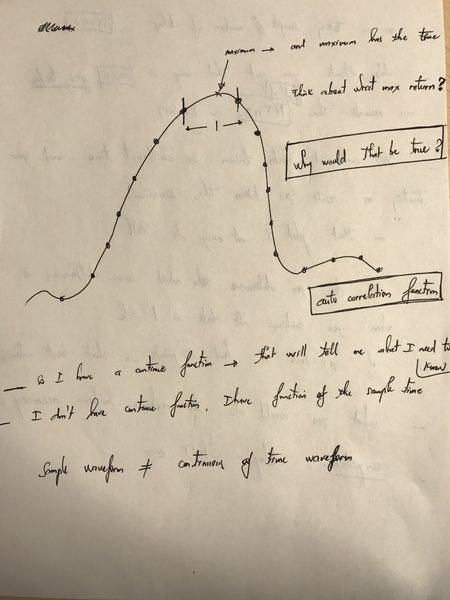 maximum → and maximum has the true
think about what max return?
1
why would that be true?
auto correlection function
— So I have a contine function → that will tell me what I need to
know
— I don't have contine function, I have function of the sample time
Sample waveform ≠ continuous of time waveform